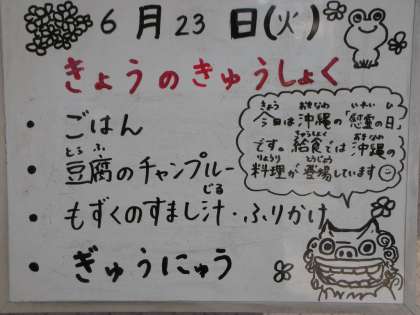 6月23日(火)
きょうのきゅうしょく
・ごはん
・豆腐のチャンプルー
とうふ
・もずくのすまし汁・ふりかけ
じる
・ぎゅうにゅう
きょう おきなわ いれい ひ
今日は沖縄の「慰霊の日」
きゅうしょく おきなわ
です。給食では沖縄の
りょうり とうじょう
料理が登場しています